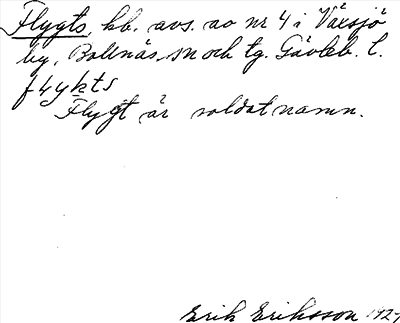 Flygts, hb. avs. av nr 4 i Växsjö
by, Bollnäs sn och tg. Gävleb. l.
flykts
Flygt är soldatnamn.
Erik Eriksson 192